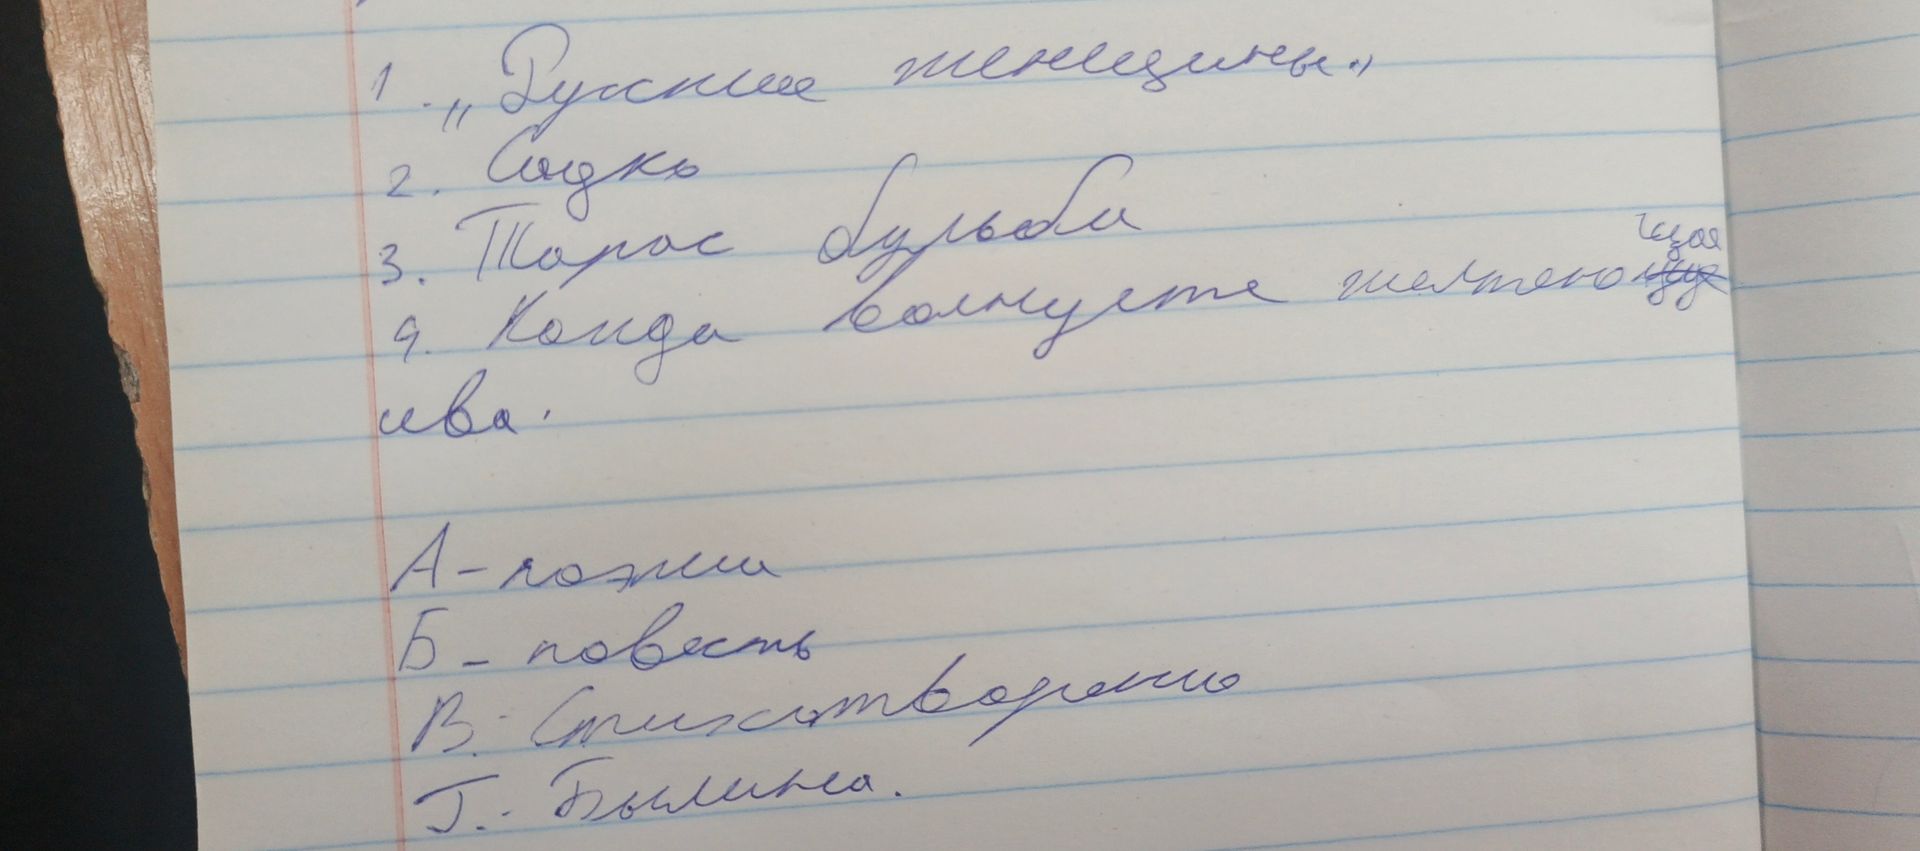 1. „Русские женщины."
2. Садко
3. Тарас бульба
4. Когда волнуется желтею щая
ива.
А - поэма
Б - повесть
В. - Стихотворенио
Г. - Былина.